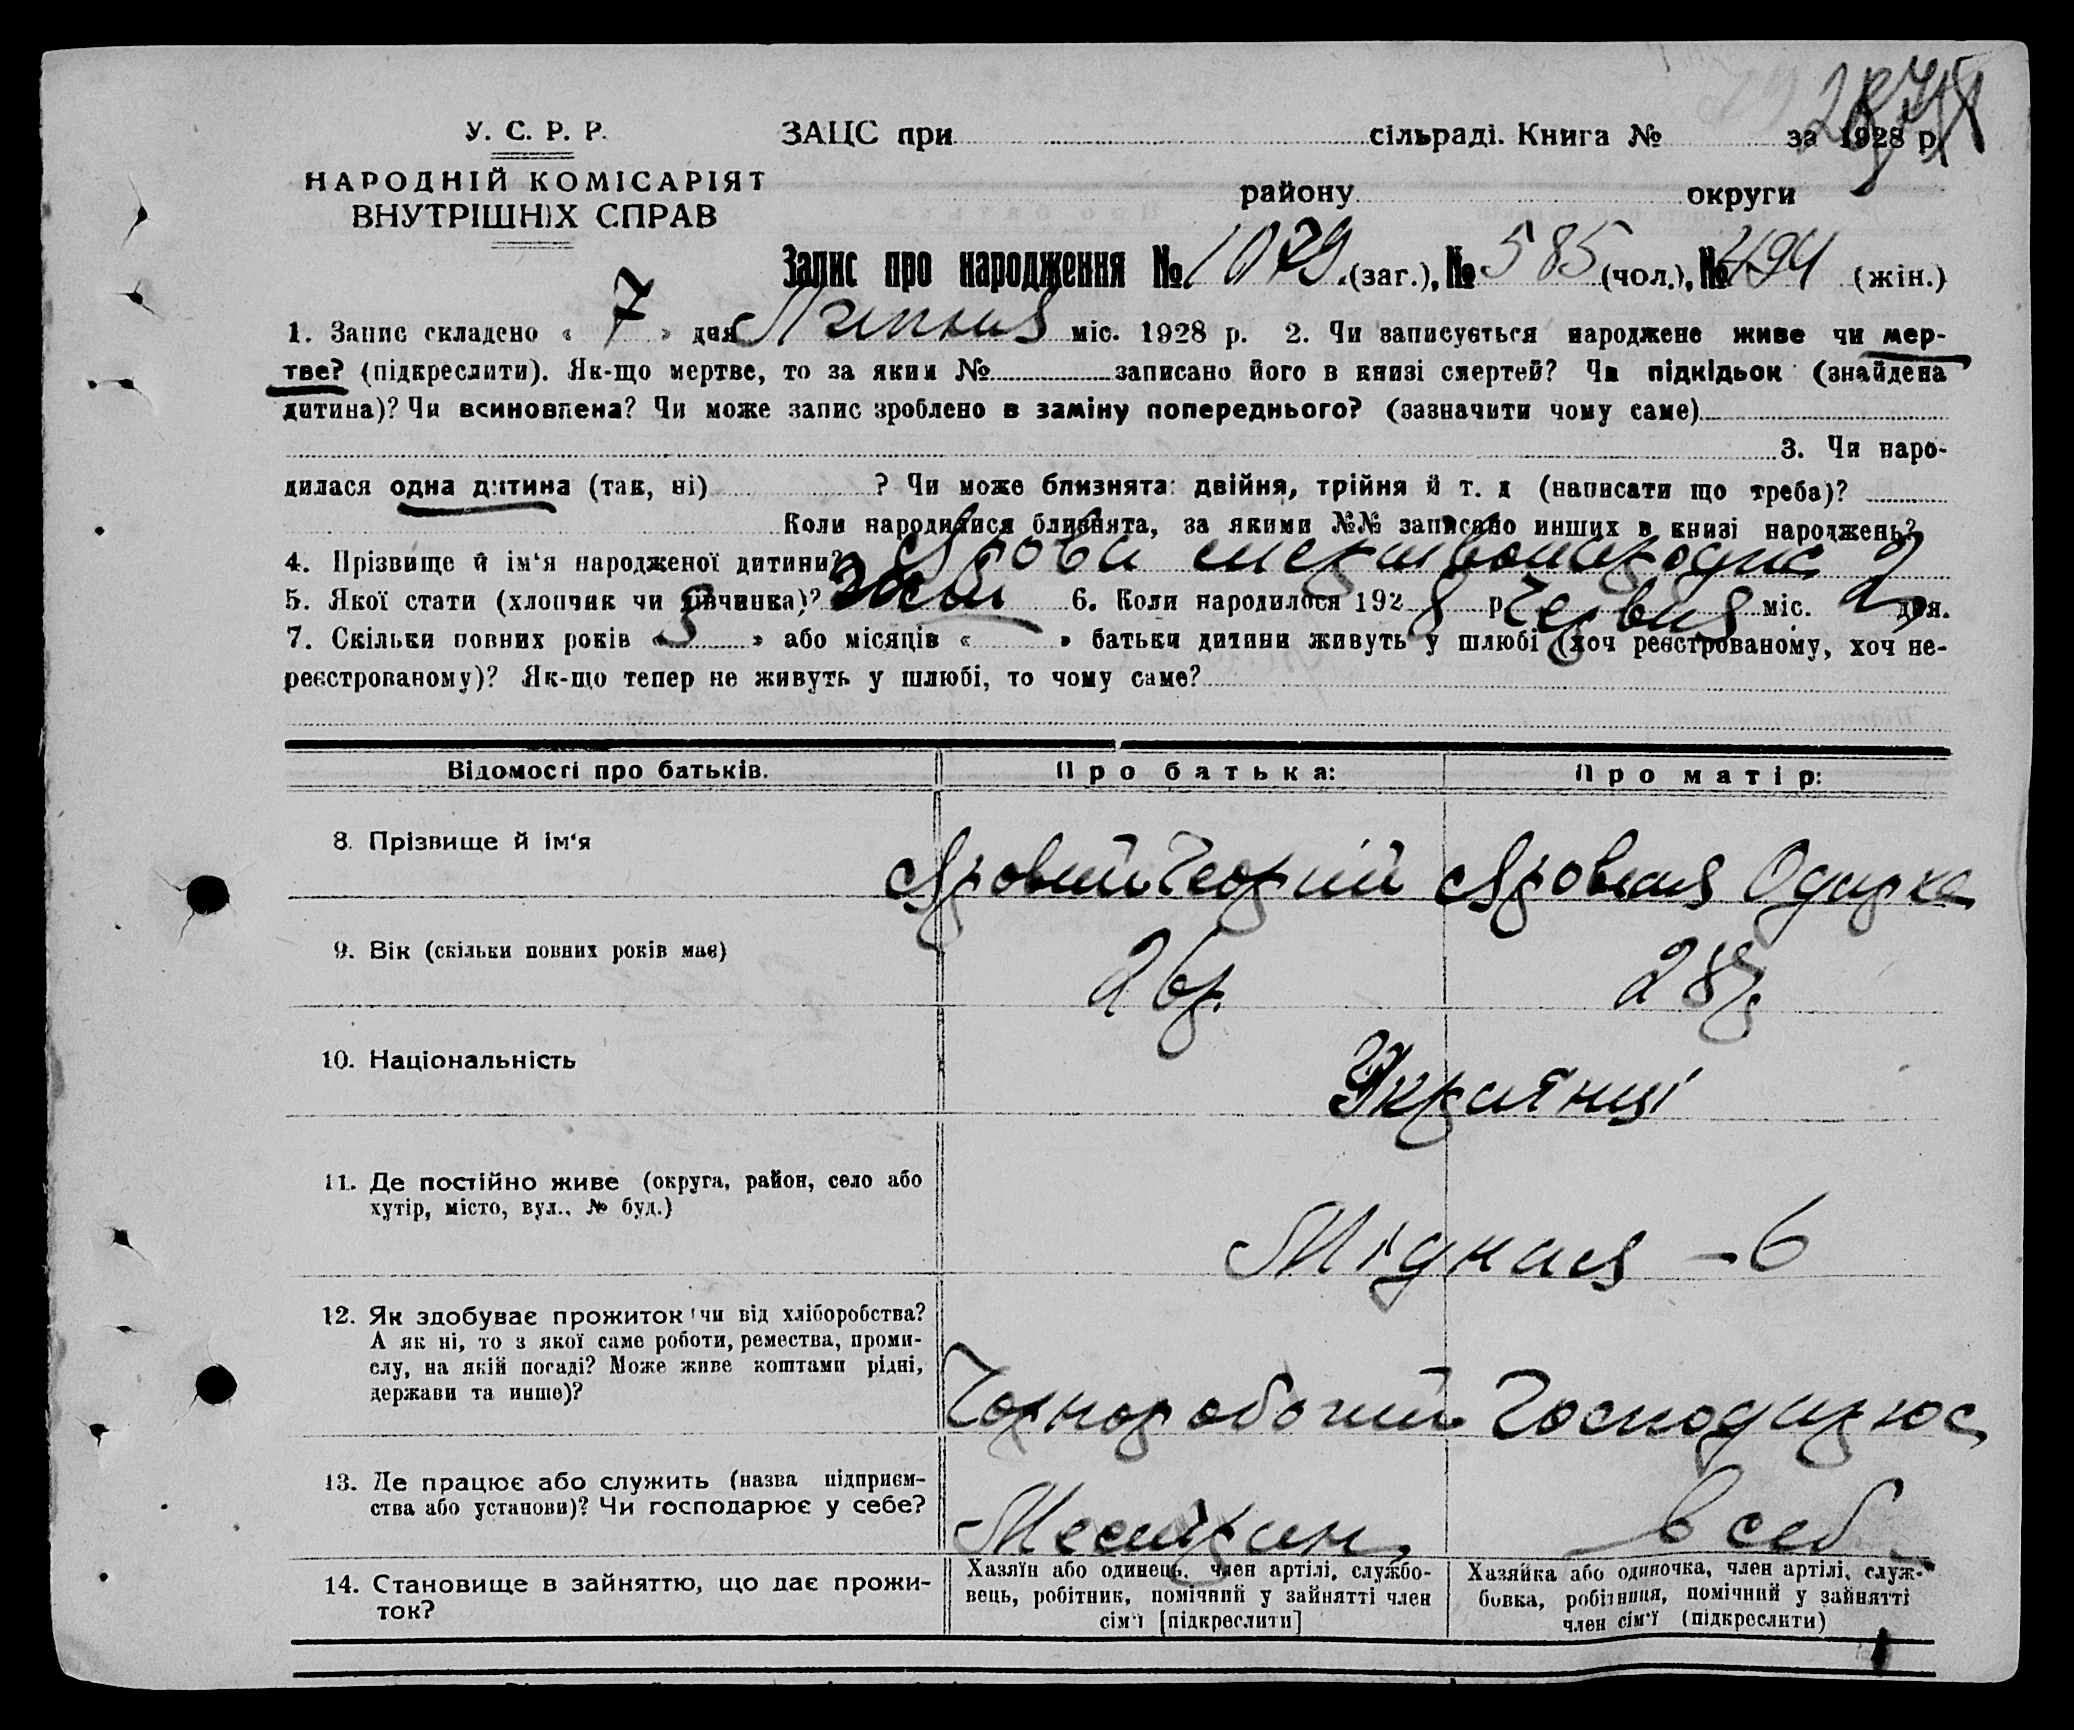 У. С. Р. Р.
ЗАЦС при сільраді. Книга № за 1928 р.
НАРОДНІЙ КОМІСАРІЯТ
району округи
ВНУТРІШНІХ СПРАВ
Запис про народження № 1079 (заг.), № 585 (чол.), № 494 (жін.)
1. Запис складено « 7 » дня Липня міс. 1928 р. 2. Чи записується народжене живе чи мер-
тве? (підкреслити). Як-що мертве, то за яким № записано його в книзі смертей? Чи підкідьок (знайдена
дитина)? Чи всиновлена? Чи може запис зроблено в заміну попереднього? (зазначити чому саме)
3. Чи наро-
дилася одна дитина (так, ні) ? Чи може близнята: двійня, трійня й т. д (написати що треба)?
Коли народилися близнята, за якими №№ записано инших в книзі народжень?
4. Прізвище й ім'я народженої дитини? Ярова мертвонародже
5. Якої стати (хлопчик чи дівчинка)? жін 6. Коли народилося 1928 р. Червня міс. 2 дня.
7. Скільки повних років « 8 » або місяців « » батьки дитини живуть у шлюбі (хоч реєстрованому, хоч не-
реєстрованому)? Як-що тепер не живуть у шлюбі, то чому саме?
Відомості про батьків. Про батька: Про матір:
8. Прізвище й ім'я Яровий Георгій Яровая Одарка
9. Вік (скільки повних років має) 26 р. 28 р.
10. Національність Українці
11. Де постійно живе (округа, район, село або
хутір, місто, вул., № буд.) Мідная - 6
12. Як здобуває прожиток (чи від хліборобства?
А як ні, то з якої саме роботи, ремества, проми-
слу, на якій посаді? Може живе коштами рідні,
держави та инше)? Чорноробочий Господарює
13. Де працює або служить (назва підприєм-
ства або установи)? Чи господарює у себе? в себ
14. Становище в зайняттю, що дає прожи-
ток?
Хазяїн або одинець, член артілі, службо-
вець, робітник, помічний у зайнятті член
сім'ї [підкреслити]
Хазяйка або одиночка, член артілі, служ-
бовка, робітниця, помічний у зайнятті
член сім'ї (підкреслити)